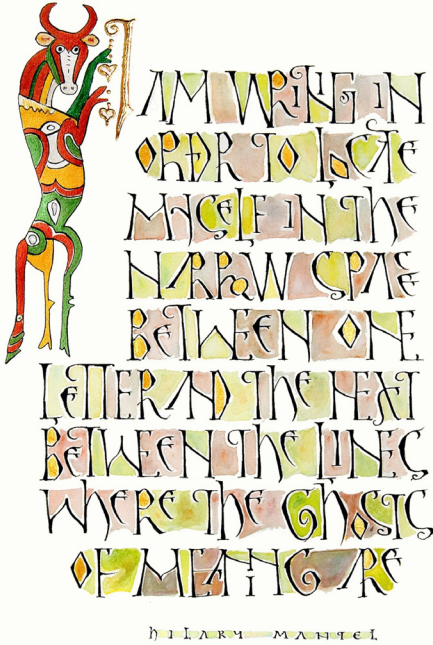 I AM WRITING IN
ORDER TO LOCATE
MYSELF IN THE
NARROW SPACE
BETWEEN ONE
LETTER AND THE NEXT
BETWEEN THE LINES
WHERE THE GHOSTS
OF MEANING ARE
HILARY MANTEL